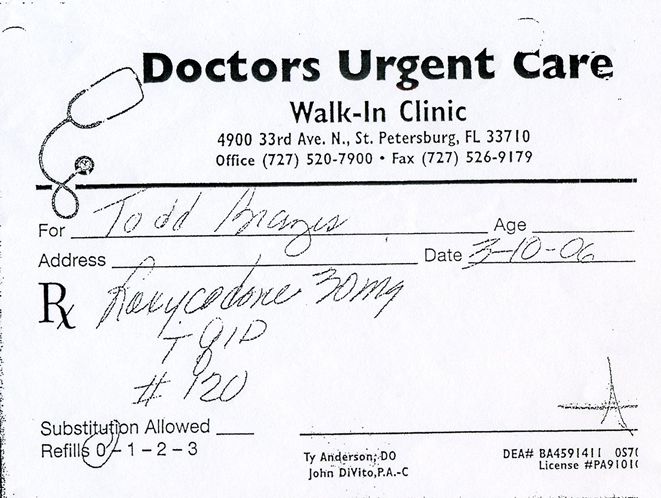 Doctors Urgent Care
Walk-In Clinic
4900 33rd Ave. N., St. Petersburg, FL 33710
Office (727) 520-7900 • Fax (727) 526-9179
For Todd Age
Address Date 3-10-06
Rx Roxycodone 30mg
T QID
# 120
Substitution Allowed
Refills 0 - 1 - 2 - 3
Ty Anderson, DO
John DiVito, P.A.-C
DEA# BA4591411 OS7
License #PA9101